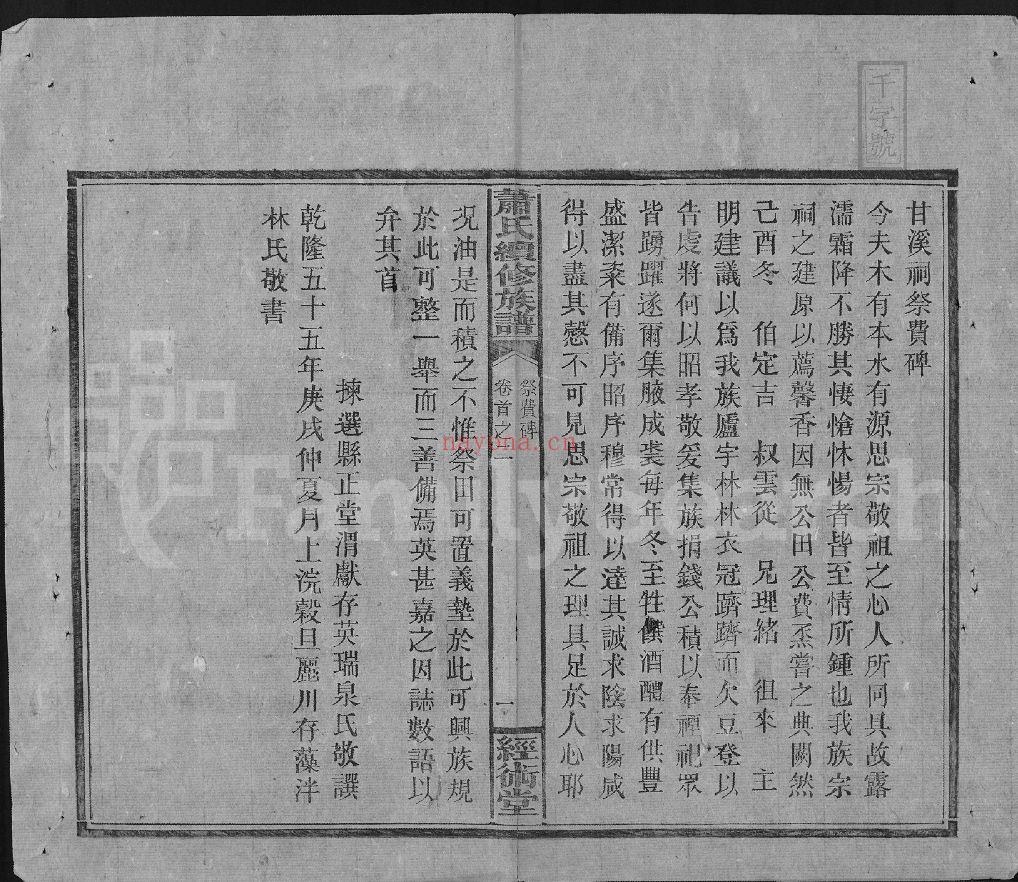 千字號
甘溪祠祭費碑
今夫木有本水有源思宗敬祖之心人所同具故露
濡霜降不勝其悽愴怵惕者皆至情所鍾也我族宗
祠之建原以薦馨香因無公田公費烝嘗之典闕然
己酉冬 伯定吉 叔雲從 兄理緒 徂來 主
明建議以為我族廬宇林林衣冠躋躋而欠豆登以
告虔將何以昭孝敬爰集族捐錢公積以奉禋祀眾
皆踴躍遂爾集腋成裘每年冬至牲饌酒醴有供豐
盛潔粢有備序昭序穆常得以達其誠求陰求陽咸
得以盡其愨不可見思宗敬祖之理具足於人心耶
蕭氏續修族譜
祭費碑
卷首之一
一
經術堂
況油是而積之不惟祭田可置義塾於此可興族規
於此可整一舉而三善備焉英甚嘉之因誌數語以
弁其首
揀選縣正堂渭獻存英瑞泉氏敬譔
乾隆五十五年庚戌仲夏月上浣穀旦麗川存藻泮
林氏敬書
naypna.cn